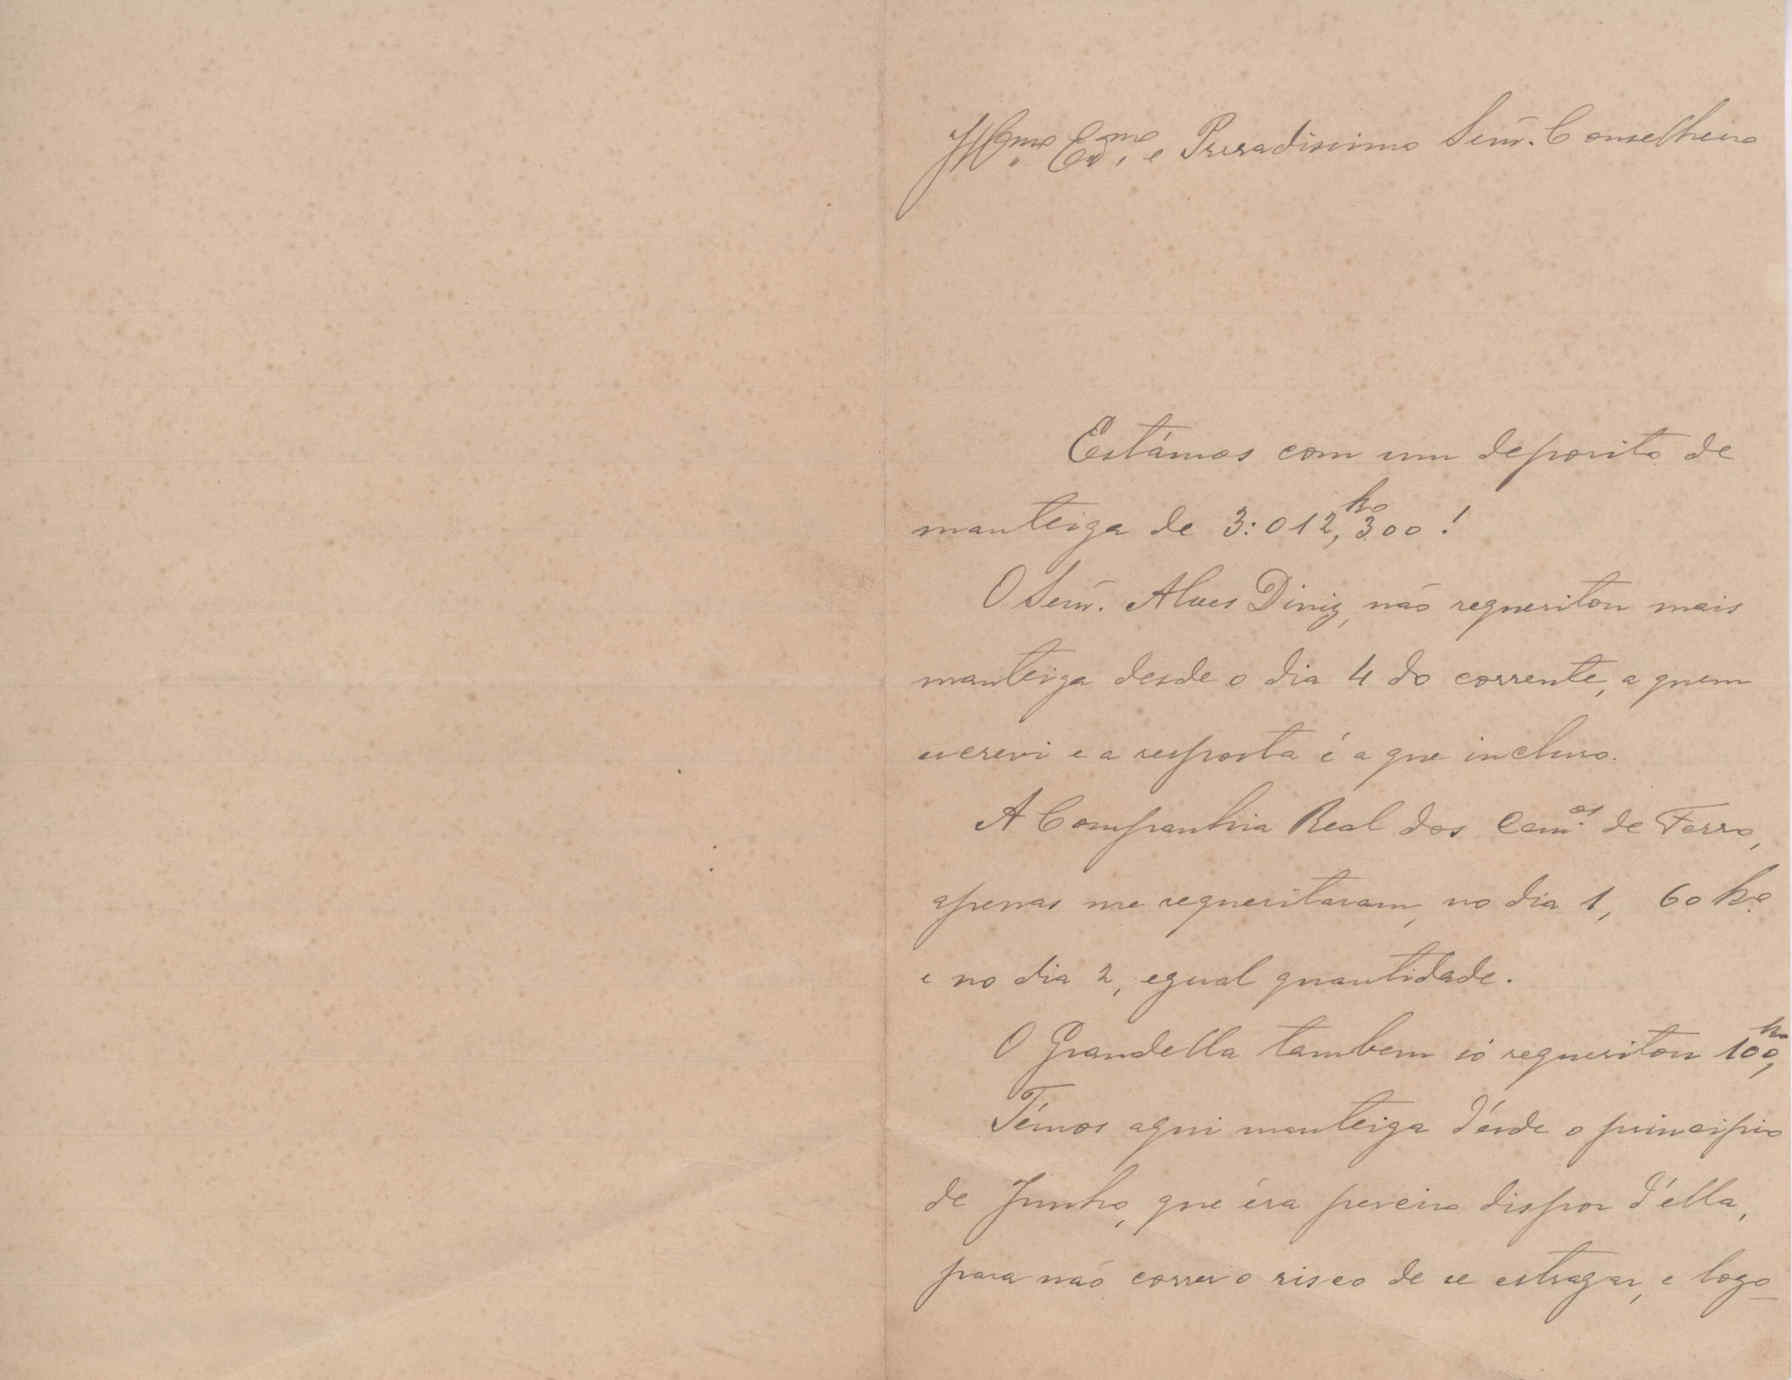 Illmo. Exmo., e Presadissimo Senr. Conselheiro
Estámos com um deposito de
manteiga de 3:012,ko300!
O Senr. Alves Diniz, não requesitou mais
manteiga desde o dia 4 do corrente, a quem
escrevi e a resposta é a que incluso.
A Companhia Real dos Camos. de Ferro,
apenas me requesitaram, no dia 1, 60 ko.
e no dia 2, egual quantidade.
O Grandella tambem só requesitou 100,ko
Témos aqui manteiga d'ésde o principio
de Junho, que éra preciso dispor d'élla,
para não correr o risco de se estragar, e logo